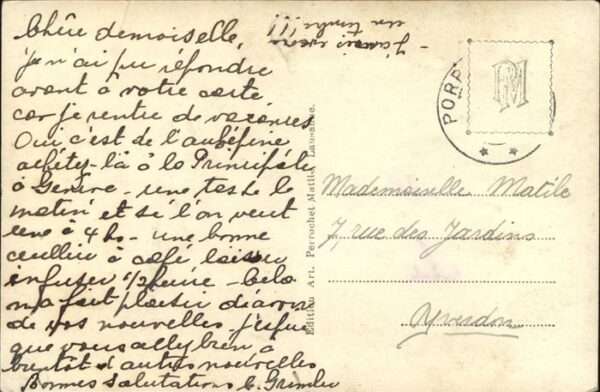 Chère demoiselle,
je n'ai pu répondre
avant à votre carte
car je rentre de vacances
Oui c'est de l'aubépine
achéty-là à la Principale
à Genève - une tasse le
matin et si l'on veut
une à 4 hs - une bonne
cuillir à café laisser
infuser 1/2 heure - Cela
m'a fait plaisir d'avoir
de vos nouvelles j'espère
que vous allez bien à
bientôt d'autres nouvelles
Bonnes salutations
- J'aurai
un timbre !!!
Edition Art. Perrochet Matile, Lausanne.
PORR
PM
Mademoiselle Matile
7, rue des Jardins
Yverdon